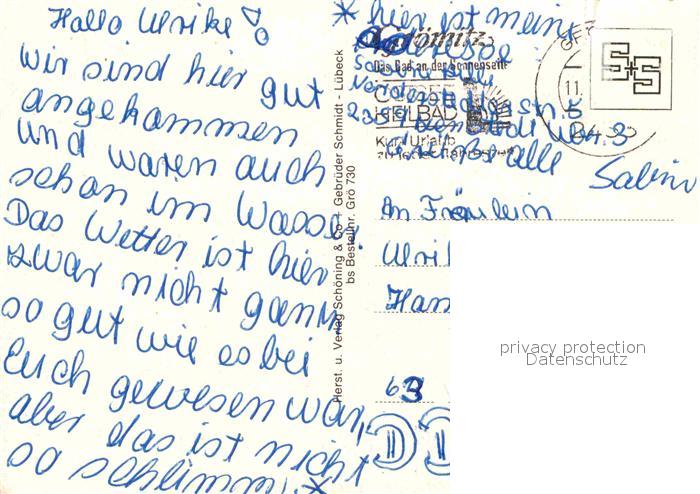 Hallo Ulrike!
Wir sind hier gut
angekommen
und waren auch
schon im Wasser.
Das Wetter ist hier
zwar nicht ganz
so gut wie es bei
Euch gewesen war,
aber das ist nicht
so schlimm! *
* hier ist meine
Grömitz
Das Bad an der Sonnenseite
HEILBAD
Kur Urlaub
alle
Sabine
An Fräulein
Ulri
Han
63
D
Herst. u. Verlag Schöning & Co + Gebrüder Schmidt - Lübeck
bs Bestellnr. Grö 730
S+S
11.
privacy protection
Datenschutz